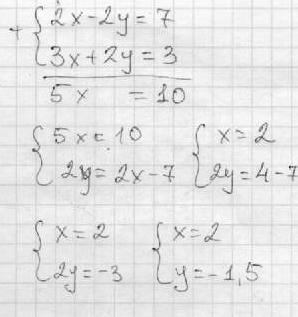 + { 2x-2y=7
3x+2y=3
5x =10
{ 5x=10
2y=2x-7
{ x=2
2y=4-7
{ x=2
2y=-3
{ x=2
y=-1,5